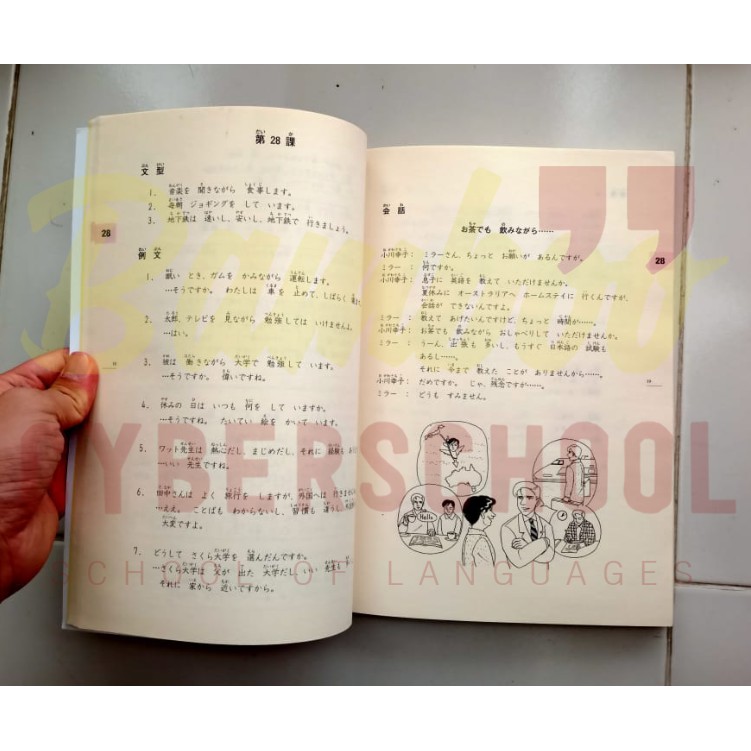 第 28 課
文 型
1. 音楽を 聞きながら 食事します。
2. 毎朝 ジョギングを して います。
3. 地下鉄は 速いし、安いし、地下鉄で 行きましょう。
28
例 文
1. 眠い とき、ガムを かみながら 運転します。
…そうですか。 わたしは 車を 止めて、しばらく
2. 太郎、テレビを 見ながら 勉強しては いけませんよ。
…はい。
3. 娘は 働きながら 大学で 勉強して います。
…そうですか。 偉いですね。
4. 休みの 日は いつも 何を して いますか。
…そうですね。 たいてい 絵を かいて います。
5. ワット先生は 熱心だし、まじめだし、それに 経験も
…いい 先生ですね。
6. 田中さんは よく 旅行を しますが、外国へは 行きません
…ええ。 ことばも わからないし、習慣も 違うし、
大変ですよ。
7. どうして さくら大学を 選んだんですか。
…さくら大学は 父が 出た 大学だし、いい 先生も
それに 家から 近いですから。
会 話
お茶でも 飲みながら……
28
小川幸子: ミラーさん、ちょっと お願いが あるんですが。
ミラー: 何ですか。
小川幸子: 息子に 英語を 教えて いただけませんか。
夏休みに オーストラリアへ ホームステイに 行くんですが、
会話が できないんですよ。
ミラー: 教えて あげたいんですけど、ちょっと 時間が……。
小川幸子: お茶でも 飲みながら おしゃべりして いただけませんか。
ミラー: うーん、出張も 多いし、もうすぐ 日本語の 試験も
あるし……。
それに 今まで 教えた ことが ありませんから……。
小川幸子: だめですか。 じゃ、残念ですが……。
ミラー: どうも すみません。
Hello
CYBERSCHOOL
SCHOOL OF LANGUAGES